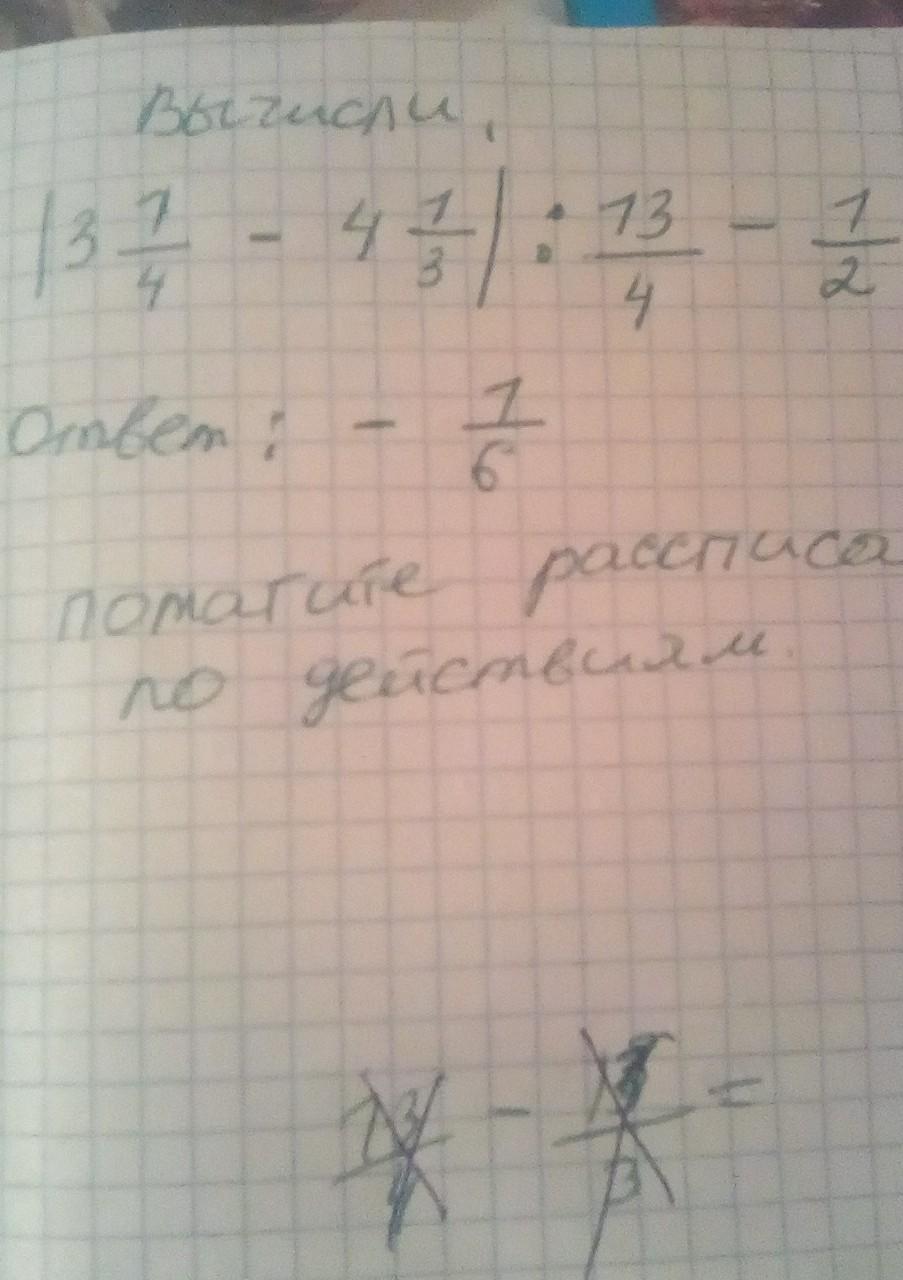 Вычисли.
|3 1/4 - 4 1/3| : 13/4 - 1/2
Ответ: - 1/6
помагите рассписа
по действиям.